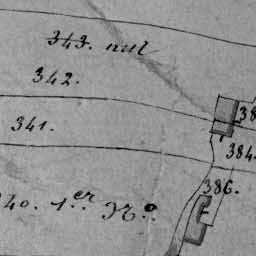 343. nul
342.
38
341.
384.
386.
40. 1.er N.o